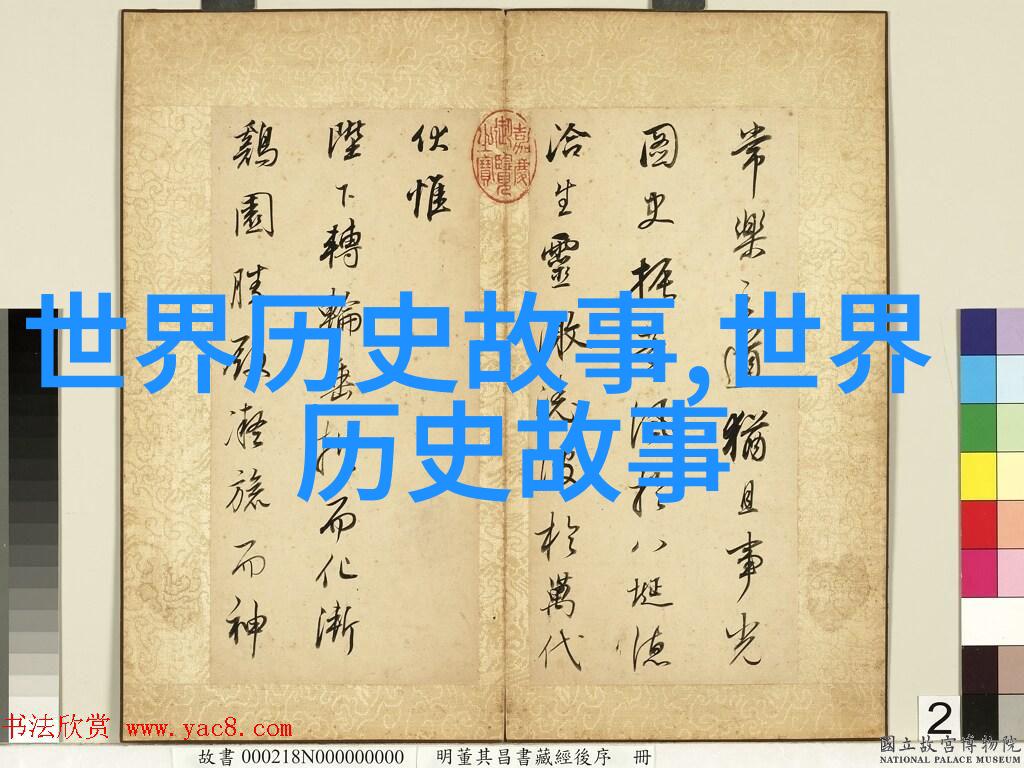 世界历史故事,世界
历史故事
常樂之道猶且事光
圖史振於八埏德
洽生靈波於萬代
伏惟
陛下轉輪垂拱而化漸
鷄園勝殿凝旒而神
嘉慶御覽之寶
2
书法欣赏 www.yac8.com
故書 000218N000000000 明董其昌書藏經後序 冊
國立故宮博物院
NATIONAL PALACE MUSEUM